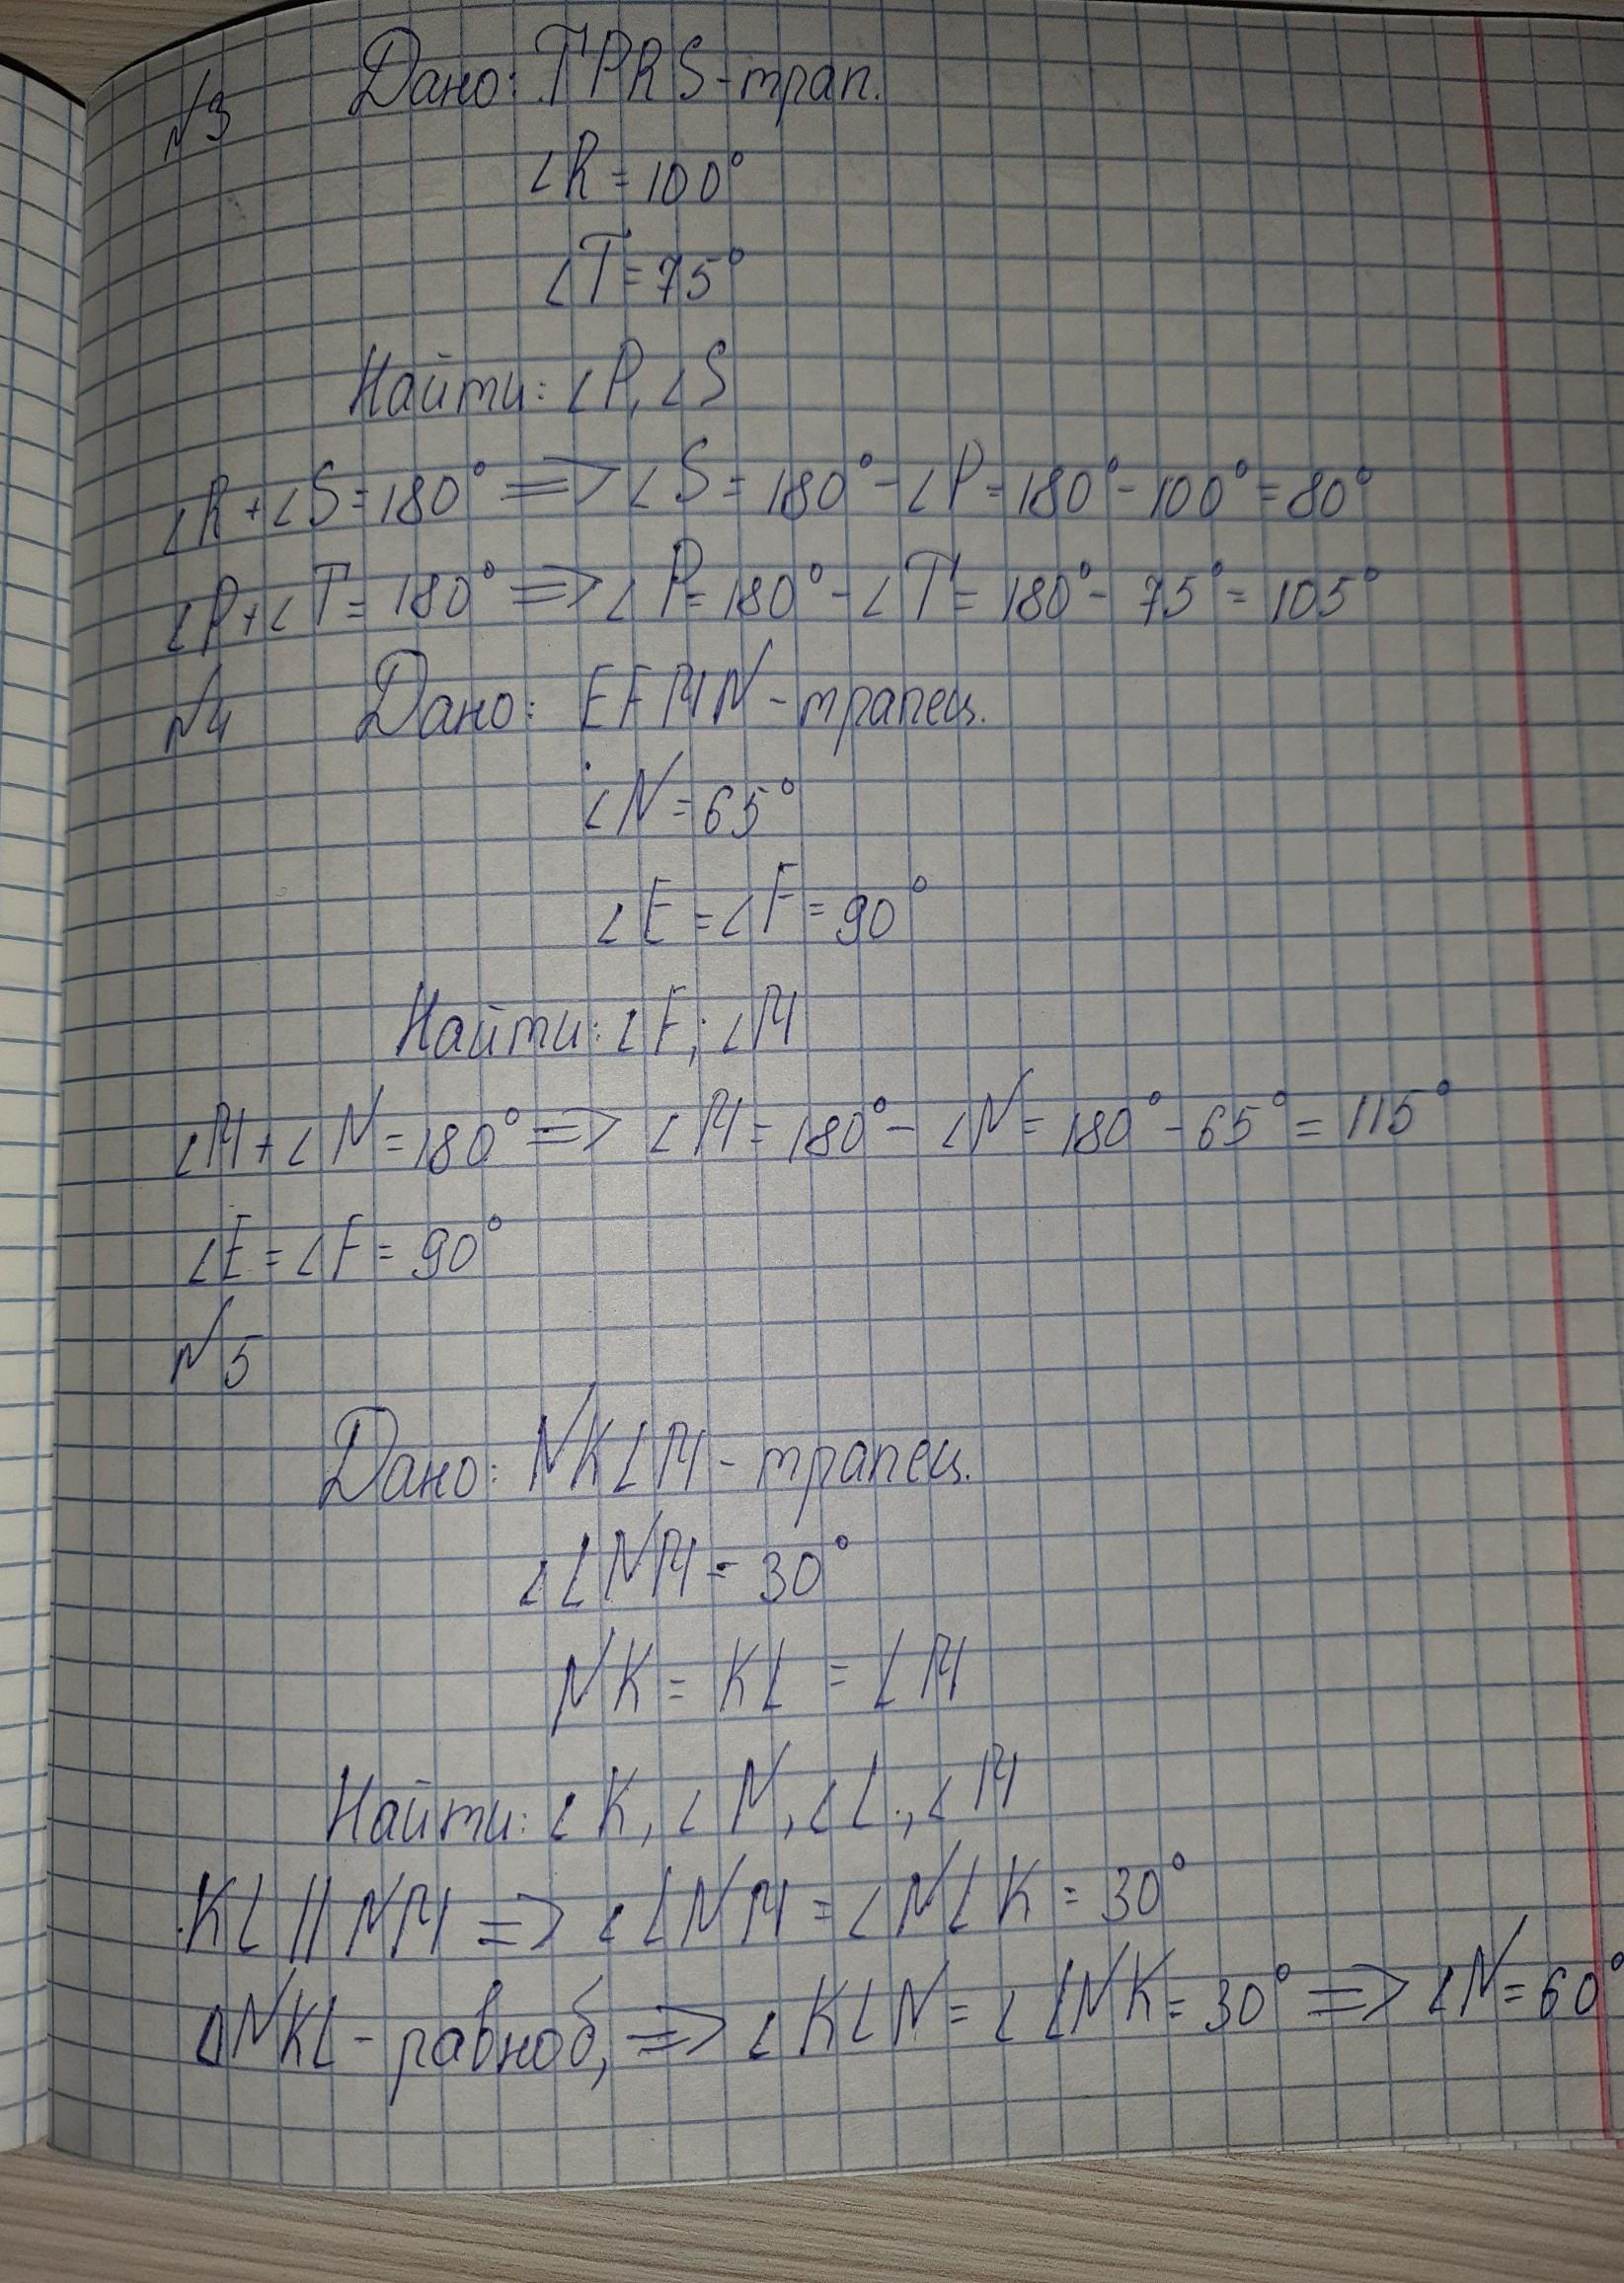 №3 Дано: TPRS-трап.
∠R = 100°
∠T = 75°
Найти: ∠P, ∠S
∠R + ∠S = 180° => ∠S = 180° - ∠P = 180° - 100° = 80°
∠P + ∠T = 180° => ∠P = 180° - ∠T = 180° - 75° = 105°
№4 Дано: EFMN - трапец.
∠N = 65°
∠E = ∠F = 90°
Найти: ∠F; ∠M
∠M + ∠N = 180° => ∠M = 180° - ∠N = 180° - 65° = 115°
∠E = ∠F = 90°
№5
Дано: NKLM - трапец.
∠LNM = 30°
NK = KL = LM
Найти: ∠K, ∠N, ∠L, ∠M
KL || NM => ∠LNM = ∠NLK = 30°
ΔNKL - равноб, => ∠KLN = ∠LNK = 30° => ∠N = 60°